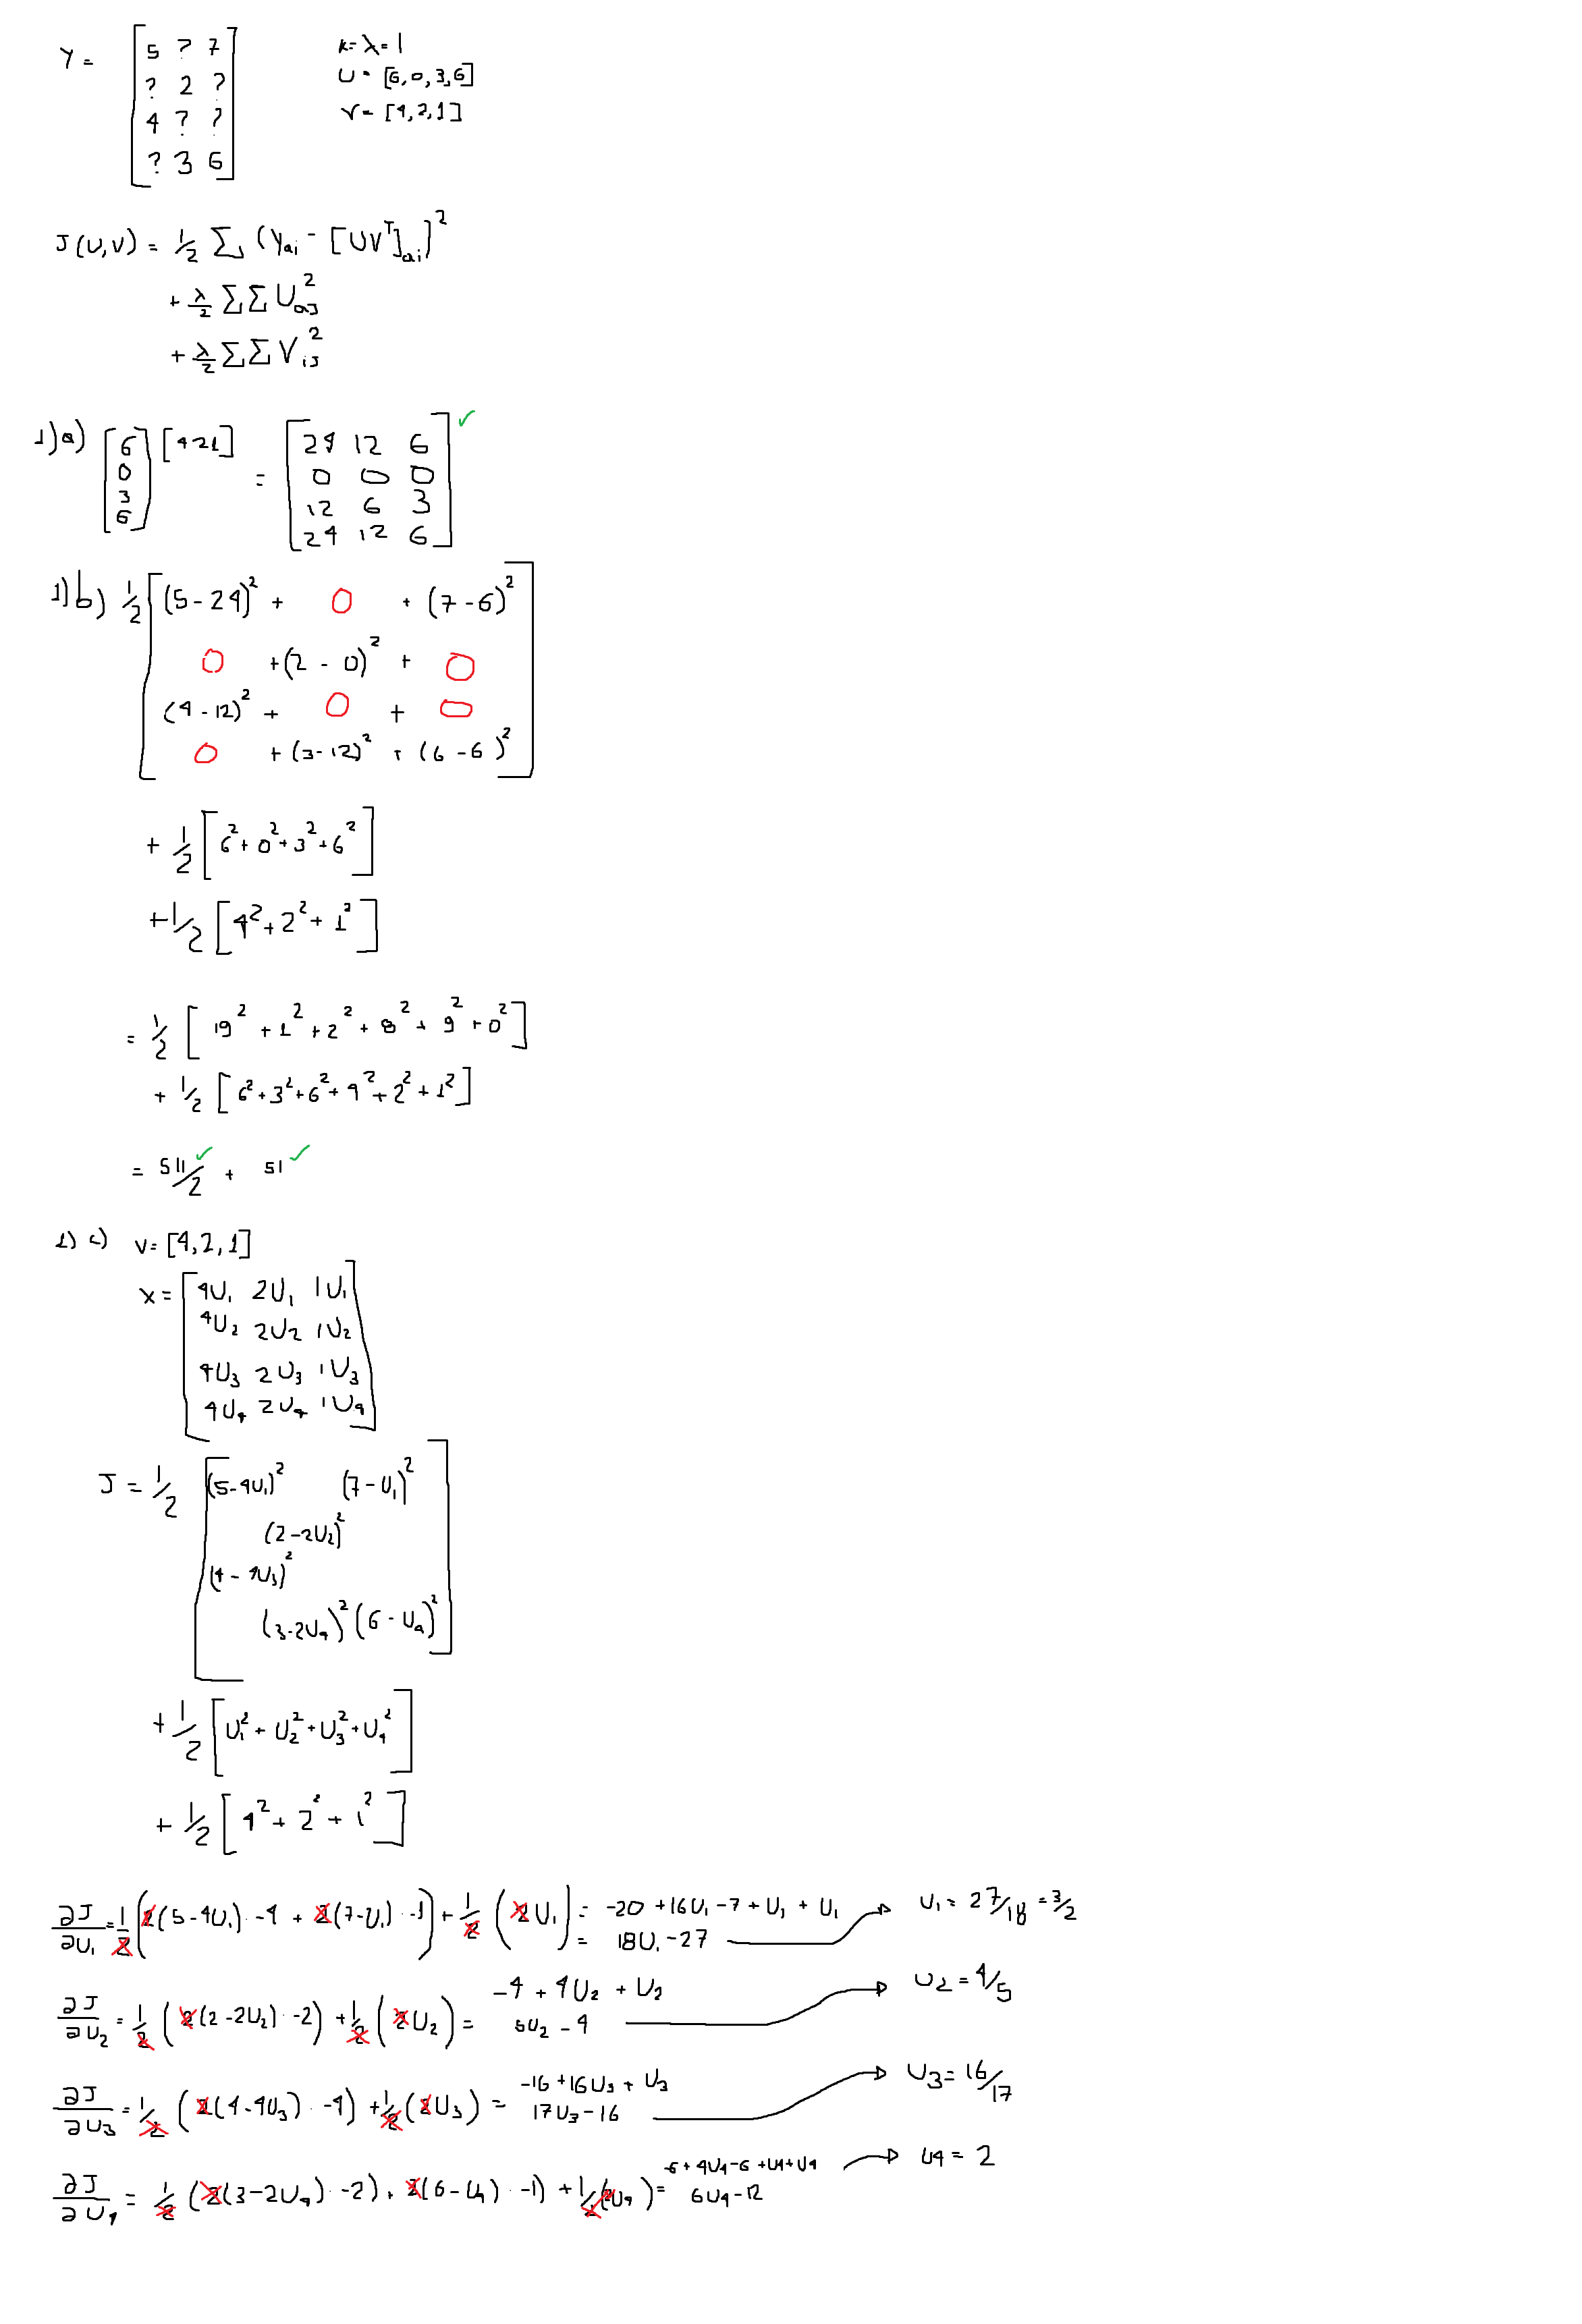 Y = [5 ? 7
? 2 ?
4 ? ?
? 3 6]
K = λ = 1
U = [6, 0, 3, 6]
V = [4, 2, 1]
J(U,V) = 1/2 Σ (Yai - [UVᵀ]ai)²
+ λ/2 ΣΣ Uaj²
+ λ/2 ΣΣ Vij²
1)a) [6 0 3 6] [4 2 1] = [24 12 6
0 0 0
12 6 3
24 12 6] ✓
1)b) 1/2 [(5-24)² + 0 + (7-6)²
0 + (2-0)² + 0
(4-12)² + 0 + 0
0 + (3-12)² + (6-6)²]
+ 1/2 [6² + 0² + 3² + 6²]
+ 1/2 [4² + 2² + 1²]
= 1/2 [19² + 1² + 2² + 8² + 9² + 0²]
+ 1/2 [6² + 3² + 6² + 4² + 2² + 1²]
= 511/2 ✓ + 51 ✓
1) c) V = [4, 2, 1]
X = [4U₁ 2U₁ 1U₁
4U₂ 2U₂ 1U₂
4U₃ 2U₃ 1U₃
4U₄ 2U₄ 1U₄]
J = 1/2 [(5-4U₁)² (7-U₁)²
(2-2U₂)²
(4-4U₃)²
(3-2U₄)² (6-U₄)²]
+ 1/2 [U₁² + U₂² + U₃² + U₄²]
+ 1/2 [4² + 2² + 1²]
∂J/∂U₁ = 1/2 (2(5-4U₁)·-4 + 2(7-U₁)·-1) + 1/2 (2U₁) = -20 + 16U₁ - 7 + U₁ + U₁
= 18U₁ - 27 → U₁ = 27/18 = 3/2
∂J/∂U₂ = 1/2 (2(2-2U₂)·-2) + 1/2 (2U₂) = -4 + 4U₂ + U₂
5U₂ - 4 → U₂ = 4/5
∂J/∂U₃ = 1/2 (2(4-4U₃)·-4) + 1/2 (2U₃) = -16 + 16U₃ + U₃
17U₃ - 16 → U₃ = 16/17
∂J/∂U₄ = 1/2 (2(3-2U₄)·-2) + 2(6-U₄)·-1) + 1/2 (2U₄) = -6 + 4U4 - 6 + U4 + U4
6U4 - 12 → U4 = 2